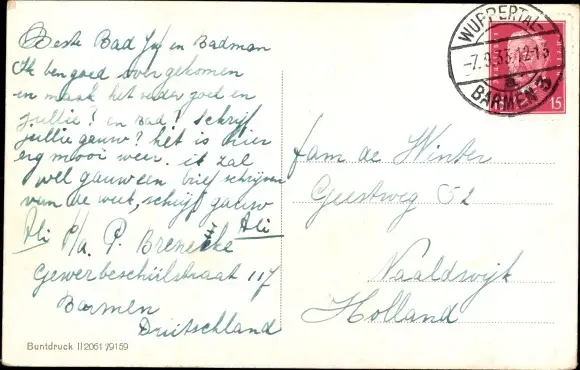 Beste Bad Jof en Badman
Ik ben goed overgekomen
en maak het ieder goed en
jullie? en Bad? Schrijf
jullie gauw? het is hier
erg mooi weer. ik zal
wel gauw een brief schrijven
van de week, schrijf gauw
Ali Ali
p/a P. Brenecke
Gewerbeschulstraat 117
Barmen
Duitschland
Buntdruck II 2061/9159
WUPPERTAL-
-7.8.33.12-13
a
BARMEN 3
15
fam de Winter
Geestweg 52
Naaldwijk
Holland